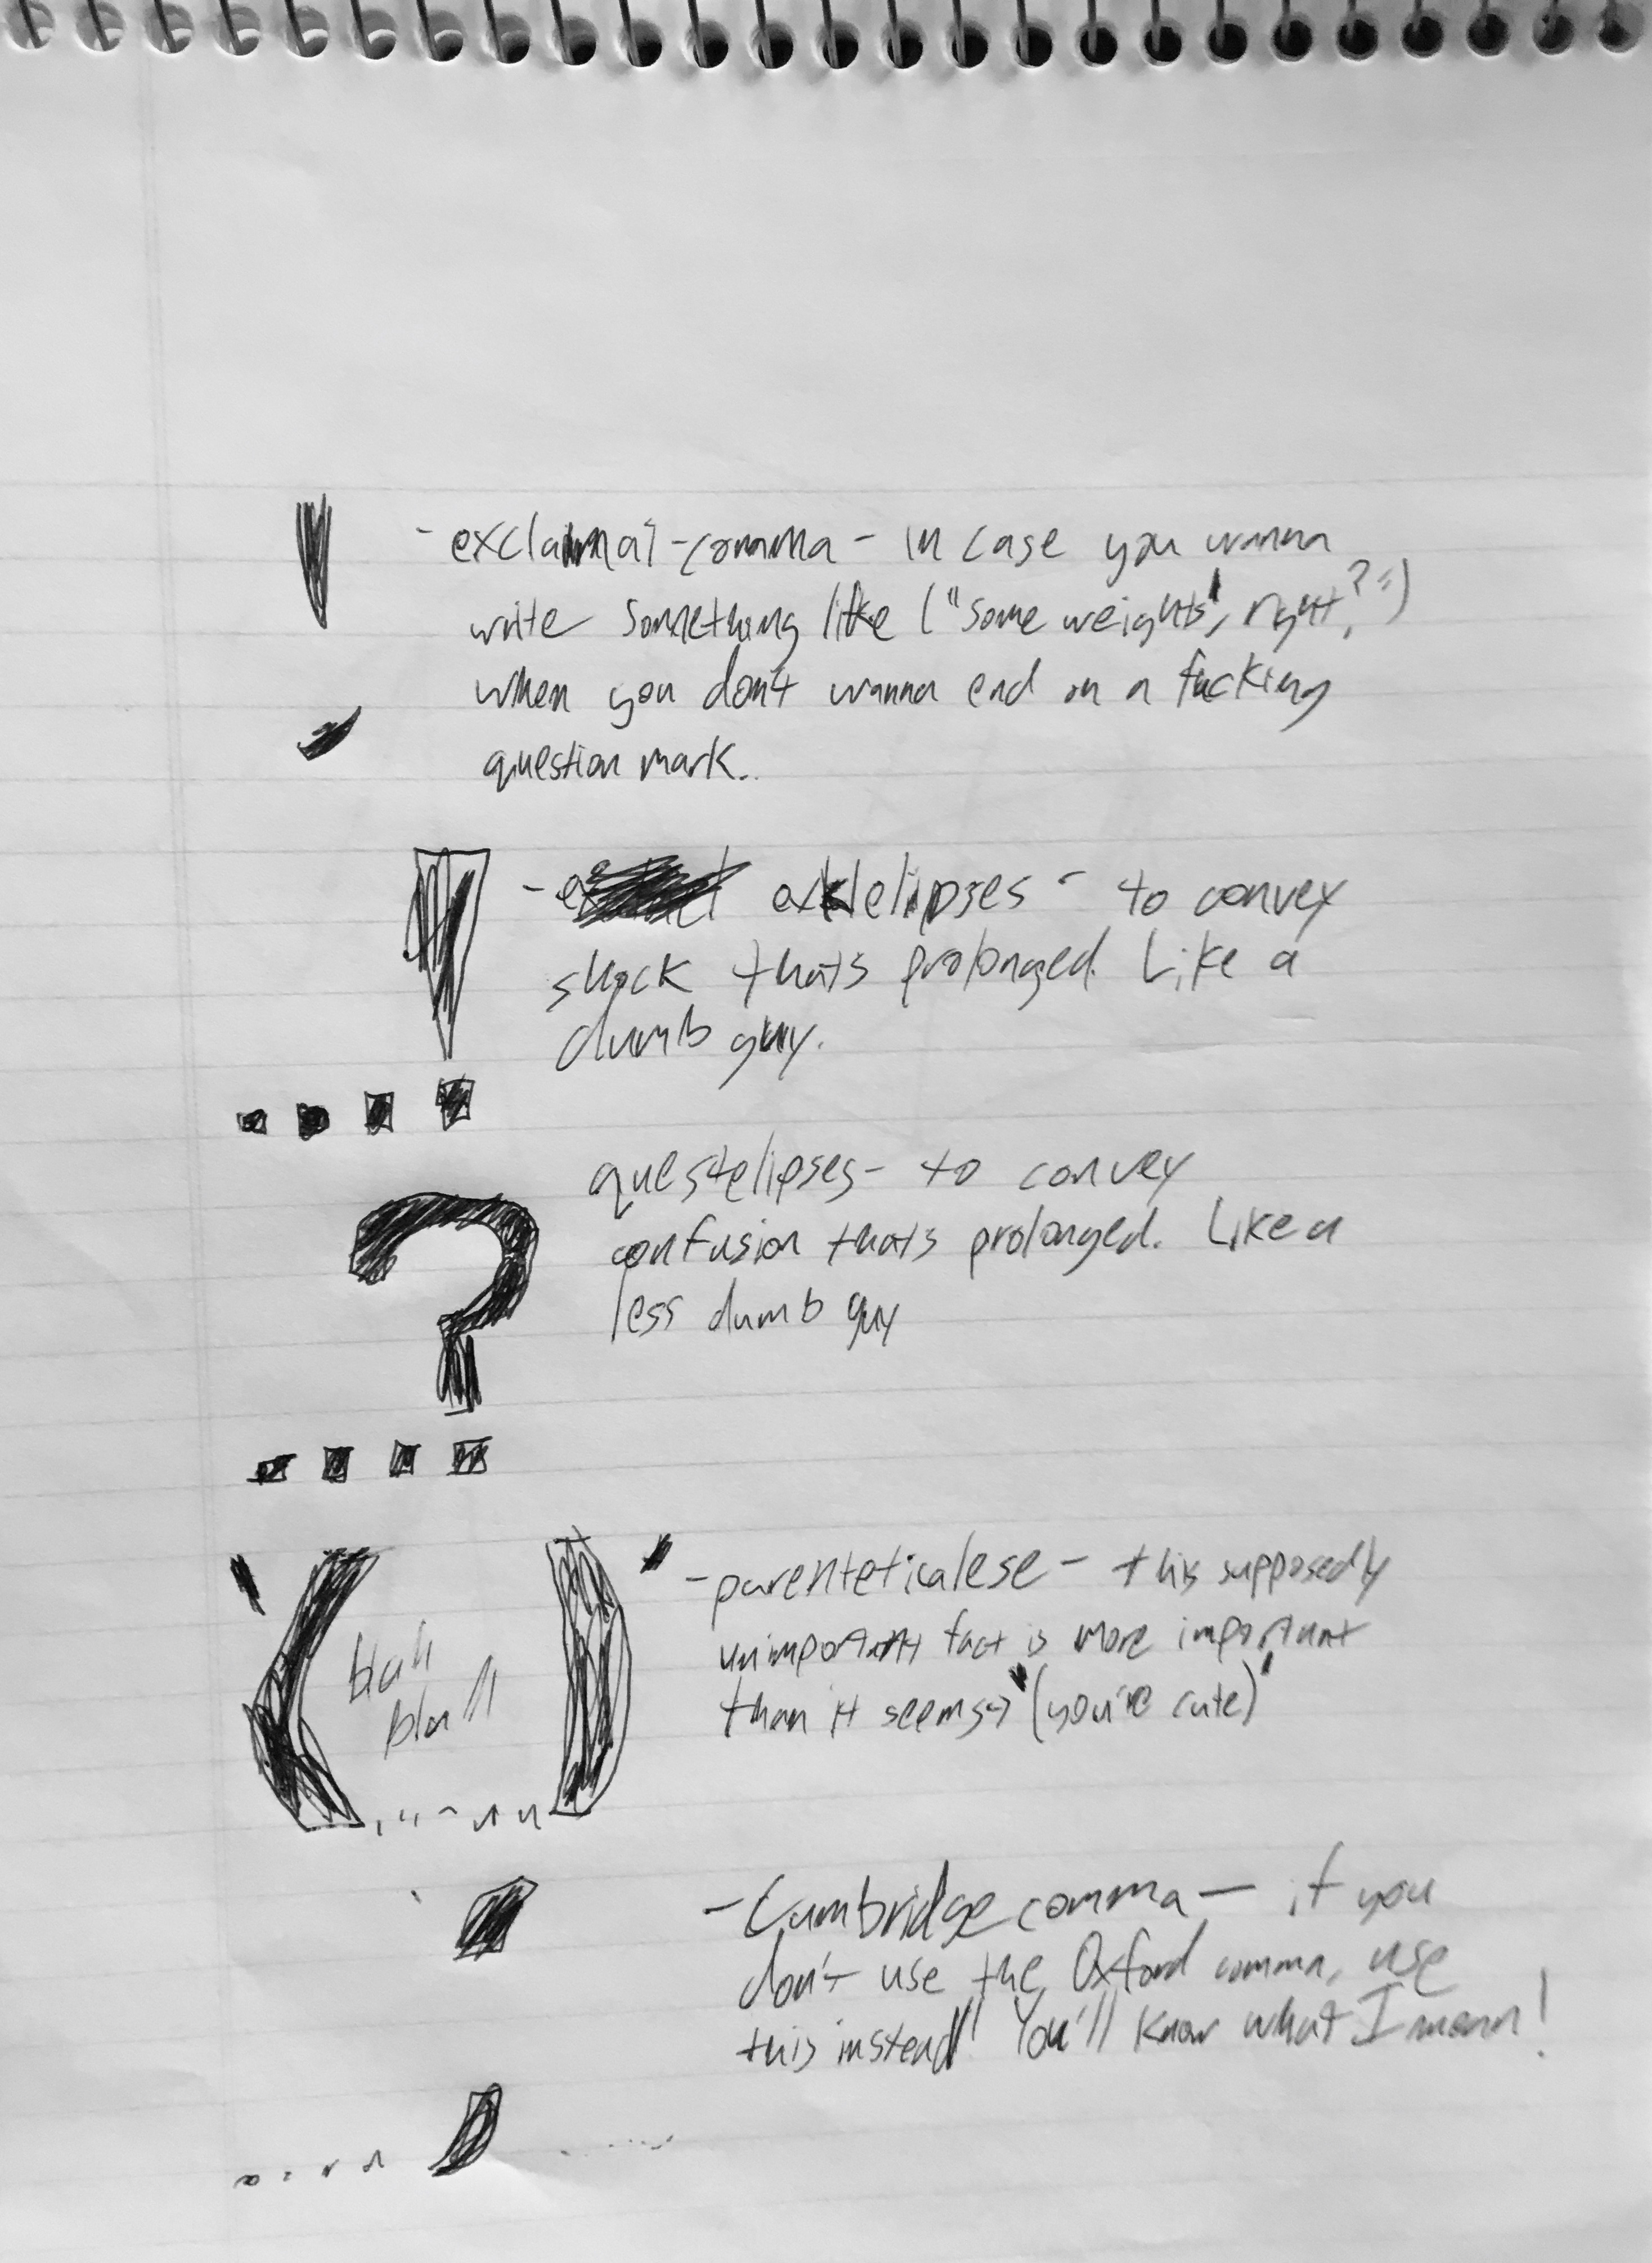 - exclaimai-comma - in case you wanna
write something like ("some weights!, right,?")
when you don't wanna end on a fucking
question mark..
- exklelipses - to convey
shock thats prolonged. Like a
dumb guy.
questelipses - to convey
confusion thats prolonged. Like a
less dumb guy
blah
blah
- parenteticalese - this supposedly
unimportant fact is more important
than it seems→ '(you're cute)'
- Cambridge comma - if you
don't use the Oxford comma, use
this instead! You'll know what I mean!